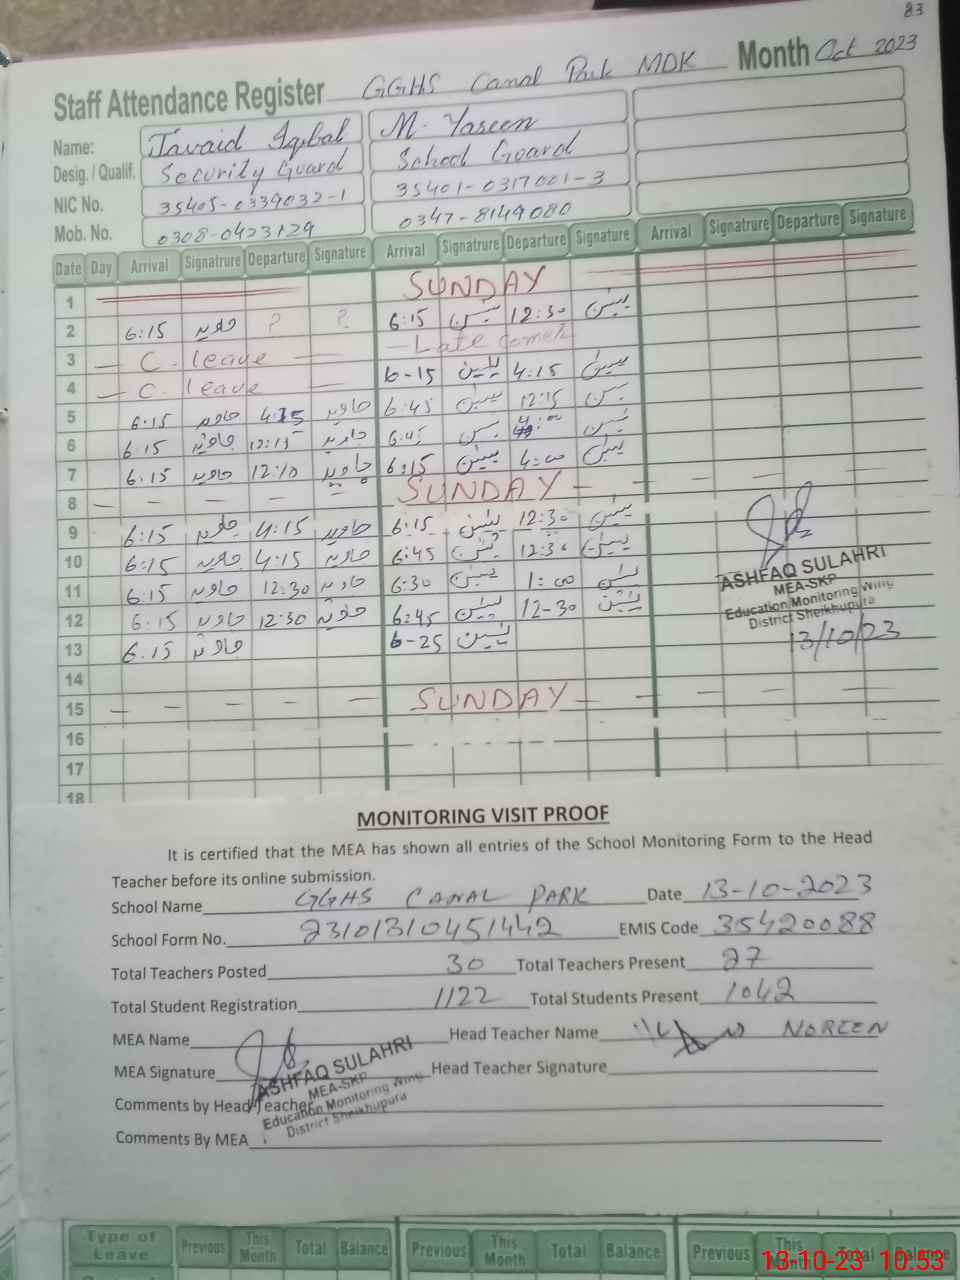 83
Staff Attendance Register GGHS Canal Park MDK Month Oct 2023
Name: Javaid Iqbal M. Yaseen
Desig. / Qualif. Security Guard School Guard
NIC No. 35405-0339032-1 35401-0317001-3
Mob. No. 0308-0423129 0347-8149080
Date Day Arrival Signatrure Departure Signature Arrival Signatrure Departure Signature Arrival Signatrure Departure Signature
1 SUNDAY
2 6:15 جاوید ? ? 6:15 یٰسین 12:30 یٰسین
3 C. leave Late comer
4 C. leave 6-15 یٰسین 4:15 یٰسین
5 6:15 جاوید 4:15 جاوید 6:45 یٰسین 12:15 یٰسین
6 6.15 جاوید 12:15 جاوید 6:45 یٰسین یٰسین
7 6.15 جاوید 12:10 جاوید 6:15 یٰسین 4:00 یٰسین
8 — — — — SUNDAY — — — — —
9 6:15 جاوید 4:15 جاوید 6:15 یٰسین 12:30 یٰسین
10 6:15 جاوید 4:15 جاوید 6:45 یٰسین 12:30 یٰسین
11 6:15 جاوید 12:30 جاوید 6:30 یٰسین 1:00 یٰسین
12 6:15 جاوید 12:30 جاوید 6:45 یٰسین 12-30 یٰسین
13 6.15 جاوید 6-25 یٰسین
ASHFAQ SULAHRI
MEA-SKP
Education Monitoring Wing
District Sheikhupura
13/10/23
14
15 — — — — SUNDAY — — — — —
16
17
18
MONITORING VISIT PROOF
It is certified that the MEA has shown all entries of the School Monitoring Form to the Head
Teacher before its online submission.
School Name GGHS CANAL PARK Date 13-10-2023
School Form No. 23101310451442 EMIS Code 35420088
Total Teachers Posted 30 Total Teachers Present 27
Total Student Registration 1122 Total Students Present 1042
MEA Name Head Teacher Name NOREEN
MEA Signature Head Teacher Signature
ASHFAQ SULAHRI
MEA-SKP
Education Monitoring Wing
District Sheikhupura
Comments by Head Teacher
Comments By MEA
Type of Leave Previous This Month Total Balance Previous This Month Total Balance Previous This Month Total Balance
13-10-23 10:53